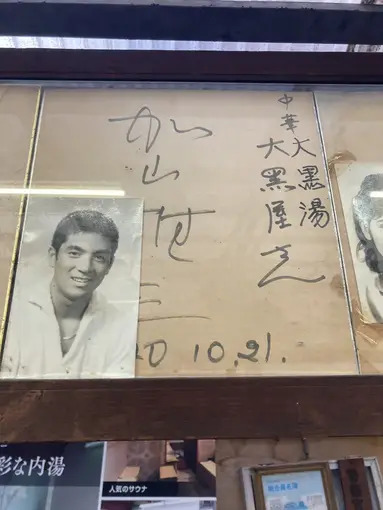 中華大黒湯
大黒屋さん
加山雄三
0 10.21.
彩な内湯
人気のサウナ